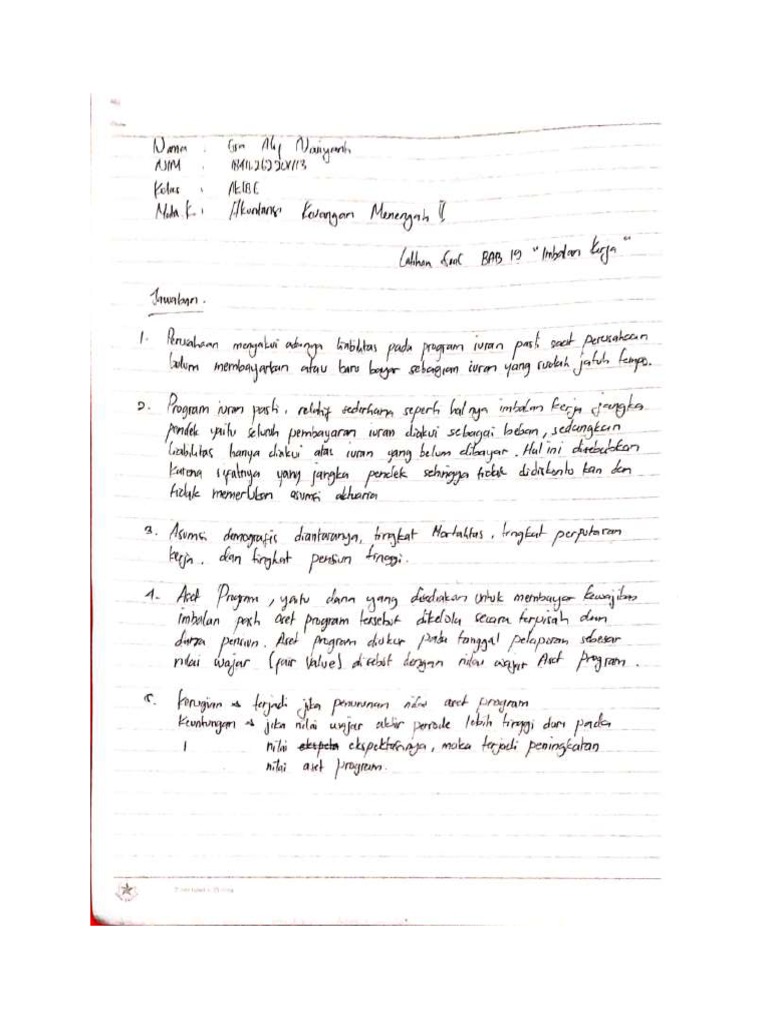 Nama :
NIM :
Kelas :
Mata K. : Akuntansi Keuangan Menengah II
Latihan Soal BAB 19 "Imbalan Kerja"
Jawaban.
1. Perusahaan mengakui adanya liabilitas pada program iuran pasti saat perusahaan
belum membayarkan atau baru bayar sebagian iuran yang sudah jatuh tempo.
2. Program iuran pasti, relatif sederhana seperti halnya imbalan kerja jangka
pendek yaitu seluruh pembayaran iuran diakui sebagai beban, sedangkan
liabilitas hanya diakui atas iuran yang belum dibayar. Hal ini disebabkan
karena sifatnya yang jangka pendek sehingga tidak didiskonto kan dan
tidak memerlukan asumsi aktuaria
3. Asumsi demografis diantaranya, tingkat Mortalitas, tingkat perputaran
kerja, dan tingkat pensiun tinggi.
4. Aset Program, yaitu dana yang disediakan untuk membayar kewajiban
imbalan pasti aset program tersebut dikelola secara terpisah dan
dana pensiun. Aset program diukur pada tanggal pelaporan sebesar
nilai wajar (fair value) disebut dengan nilai wajar Aset Program.
5. Kerugian → terjadi jika penurunan nilai aset program
Keuntungan → jika nilai wajar akhir periode lebih tinggi dari pada
nilai ekspektasinya, maka terjadi peningkatan
nilai aset program.